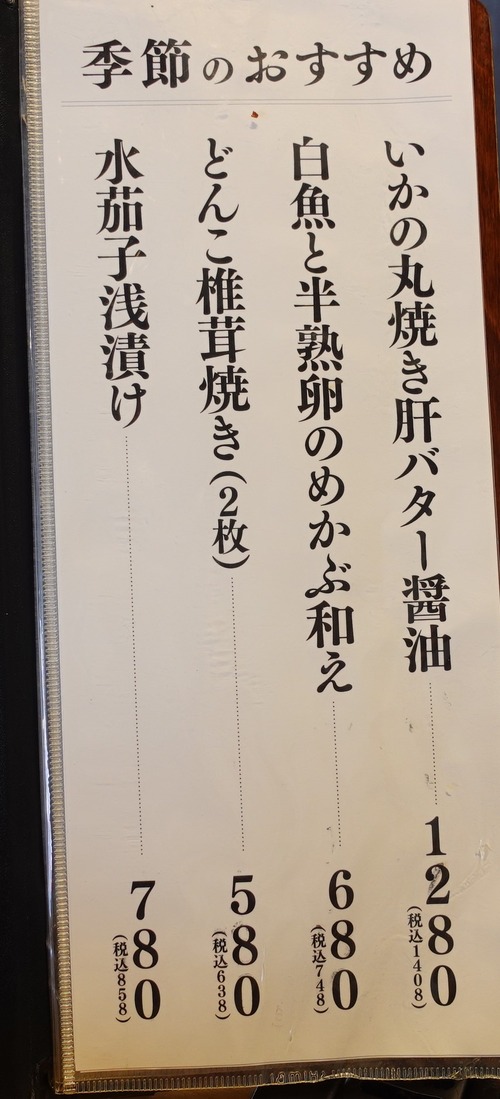 季節のおすすめ
いかの丸焼き肝バター醤油 1280
(税込1408)
白魚と半熟卵のめかぶ和え 680
(税込748)
どんこ椎茸焼き(2枚) 580
(税込638)
水茄子浅漬け 780
(税込858)